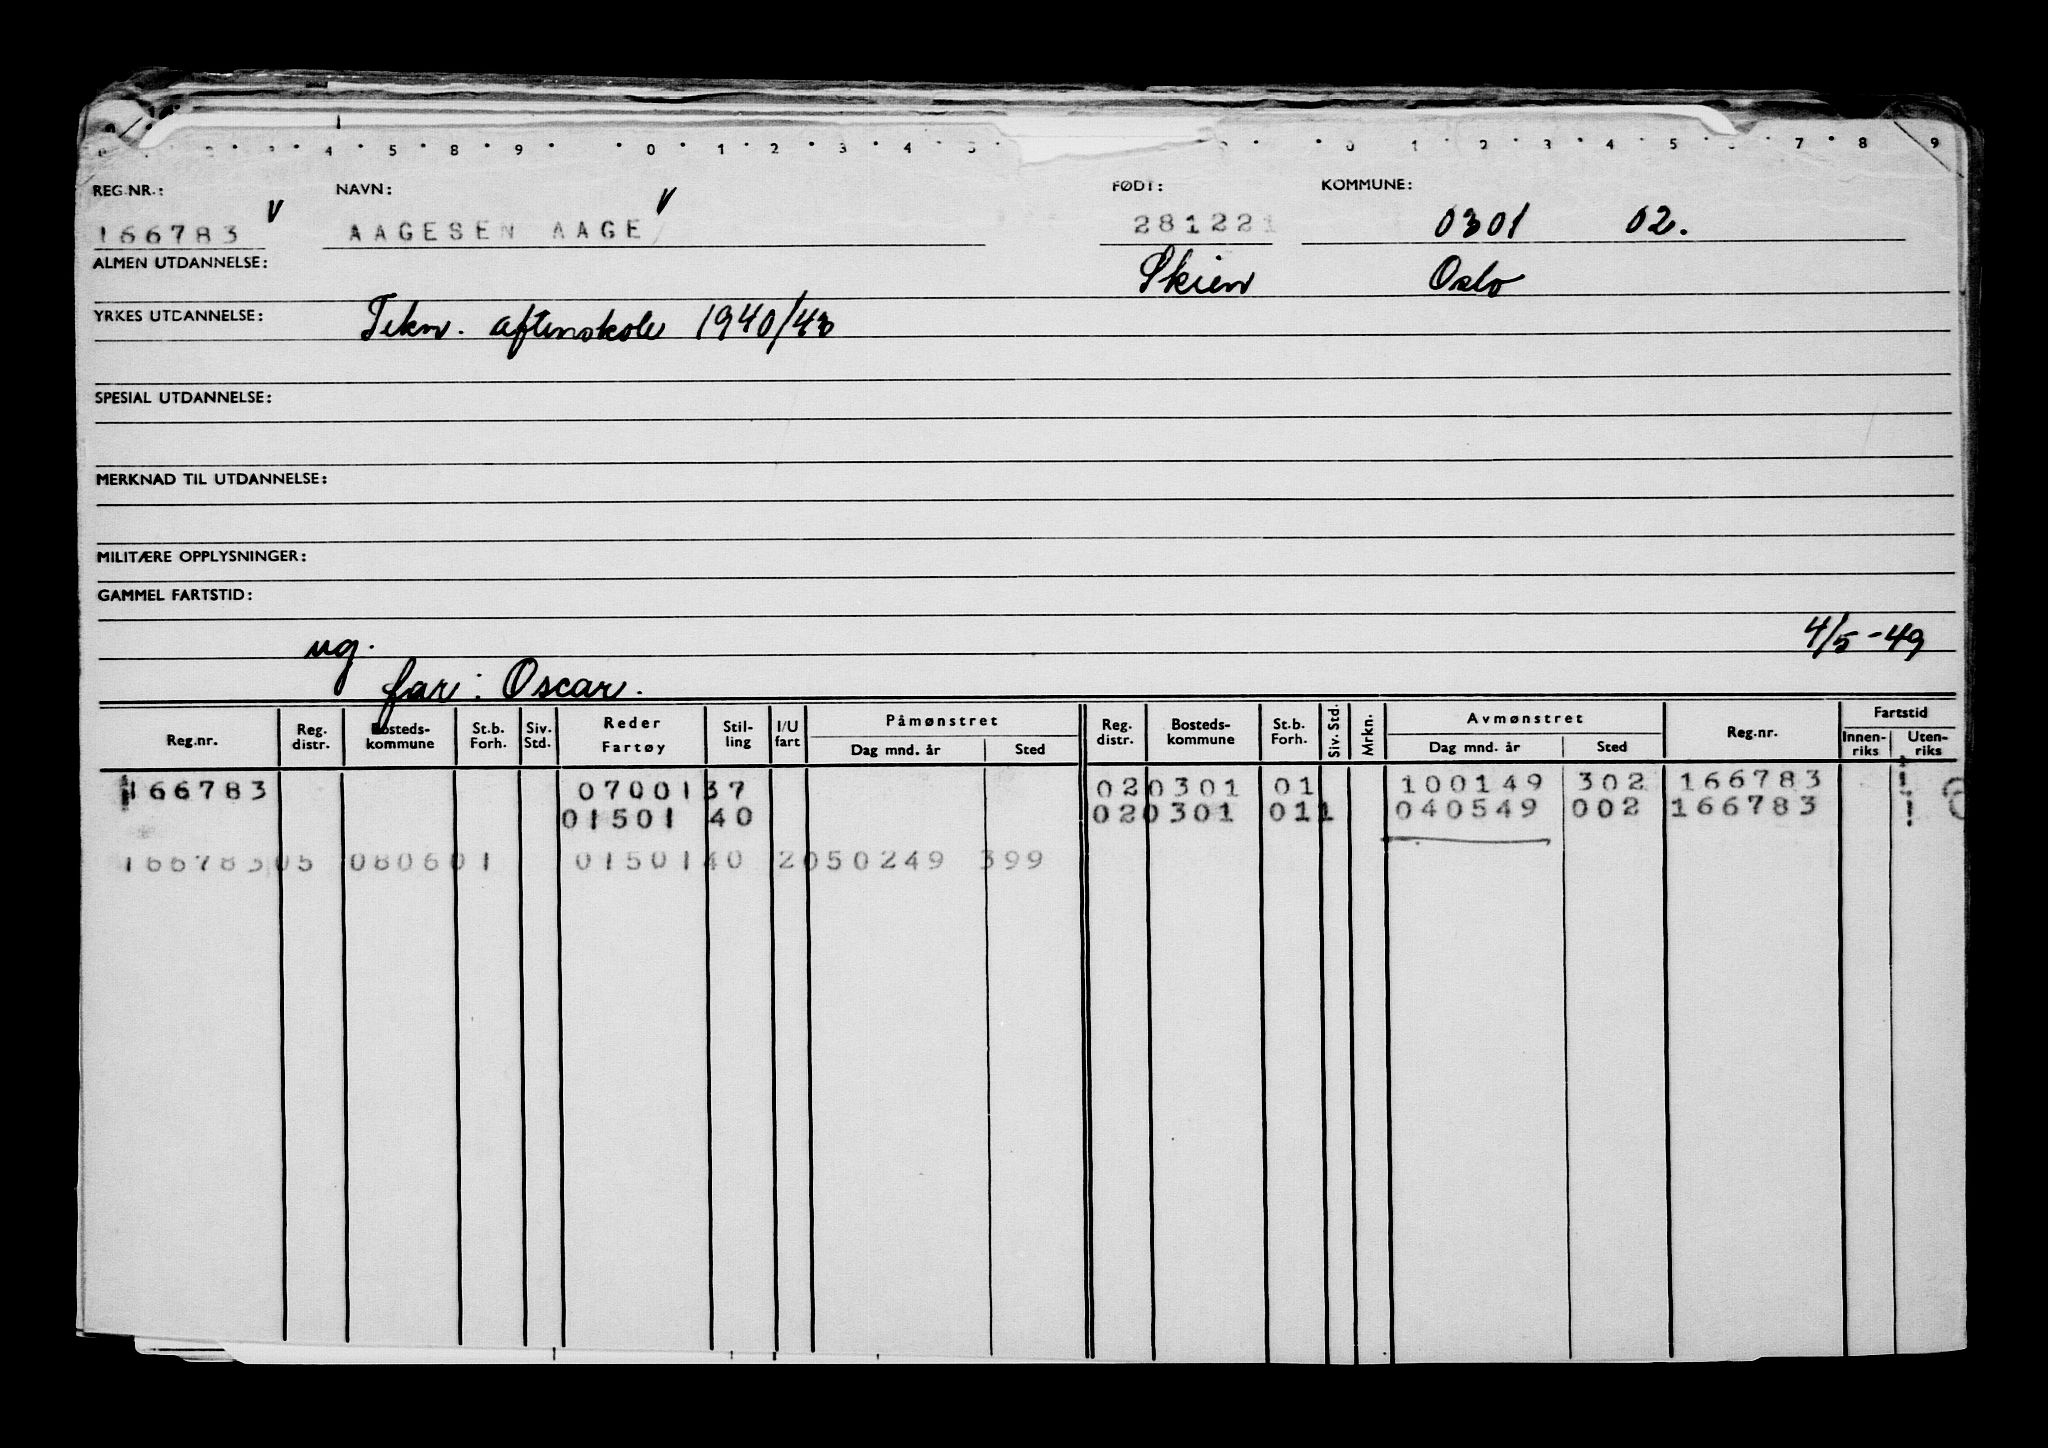 4 5 8 9 0 1 2 3 4 5 0 1 2 3 4 5 7 8 9
REG.NR.: NAVN: FØDT: KOMMUNE:
166783 V AAGESEN AAGE V 281221 0301 02.
ALMEN UTDANNELSE: Skien Oslo
YRKES UTDANNELSE: Tekn. aftenskole 1940/43
SPESIAL UTDANNELSE:
MERKNAD TIL UTDANNELSE:
MILITÆRE OPPLYSNINGER:
GAMMEL FARTSTID:
ug. 4/5-49
far: Oscar.
Reg.nr. Reg. distr. Bosteds-kommune St.b. Forh. Siv. Std. Reder Fartøy Stil-ling I/U fart Påmønstret Dag mnd. år Sted Reg. distr. Bosteds-kommune St.b. Forh. Siv. Std. Mrkn. Avmønstret Dag mnd. år Sted Reg.nr. Fartstid Innen-riks Uten-riks
166783 0700137 020301 01 100149 302 166783
01501 40 020301 011 040549 002 166783
16678305 080601 0150140 2050249 399